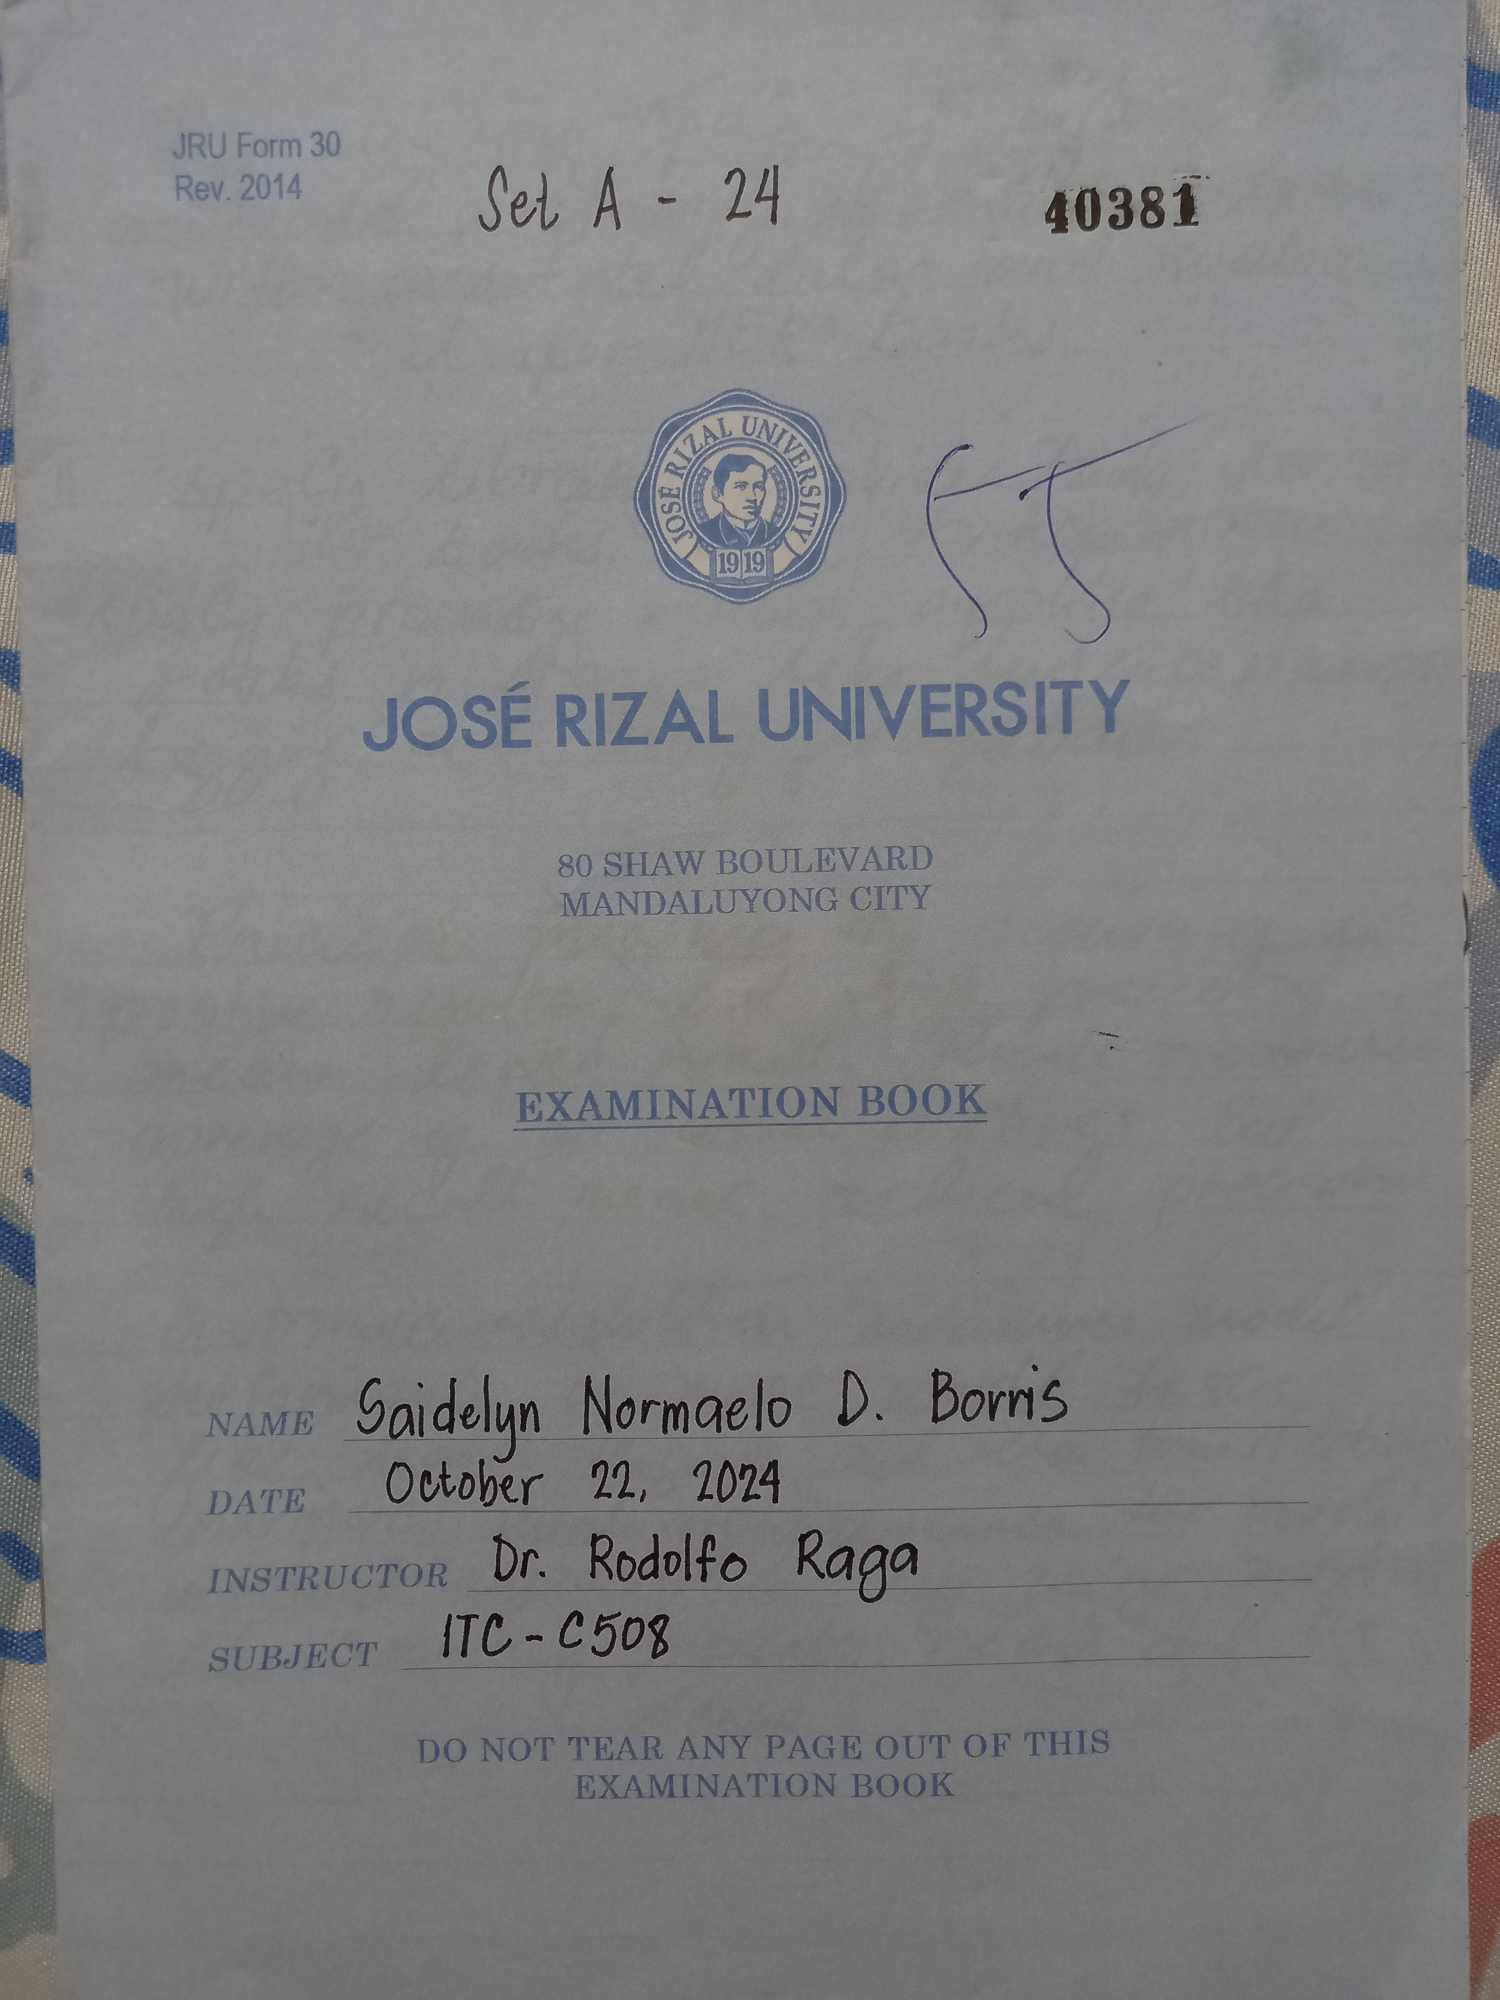 JRU Form 30
Rev. 2014
Set A - 24
40381
JOSÉ RIZAL UNIVERSITY
1919
JOSÉ RIZAL UNIVERSITY
80 SHAW BOULEVARD
MANDALUYONG CITY
EXAMINATION BOOK
NAME Saidelyn Normaelo D. Borris
DATE October 22, 2024
INSTRUCTOR Dr. Rodolfo Raga
SUBJECT ITC - C508
DO NOT TEAR ANY PAGE OUT OF THIS
EXAMINATION BOOK